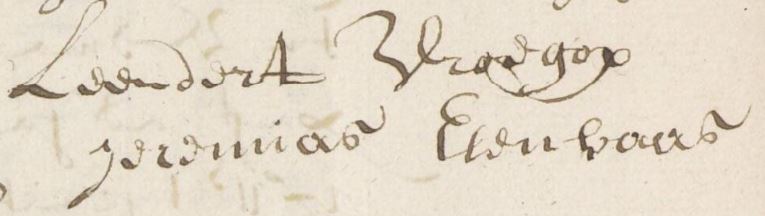 Leendert Vroegop
Jeremias Elenbaas